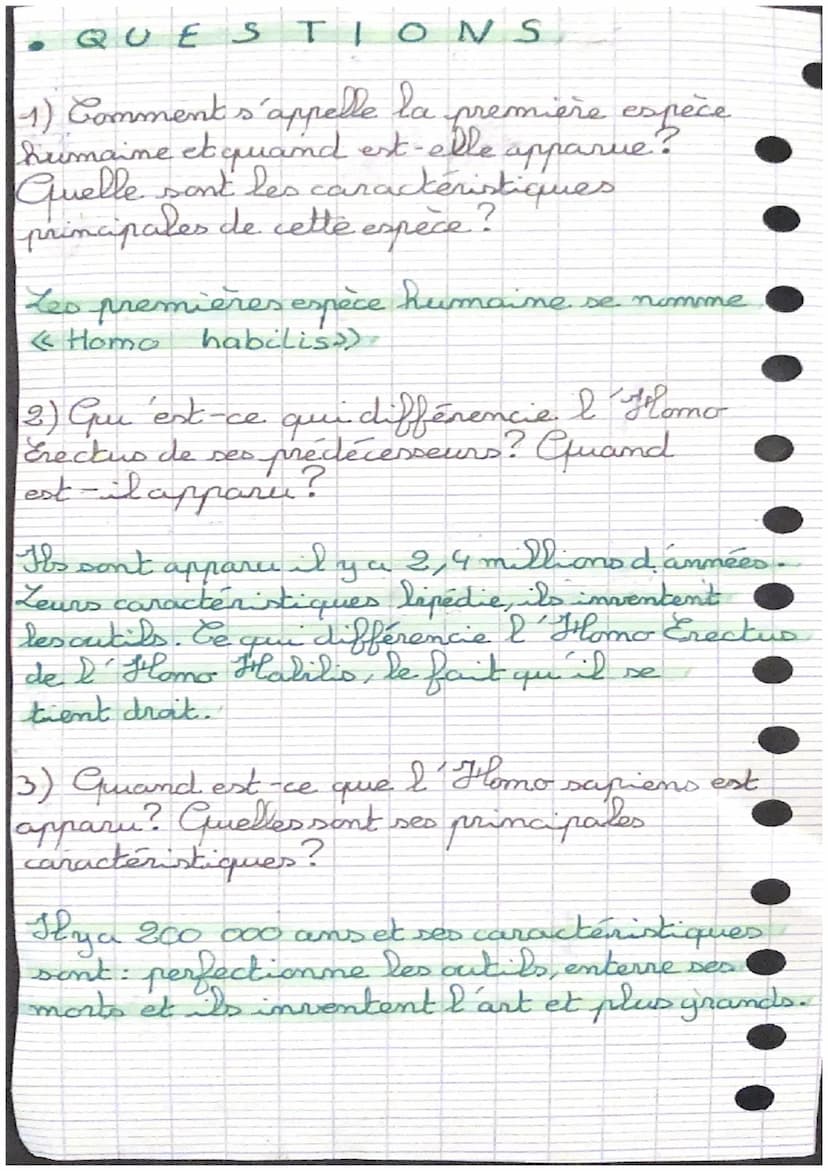 • QUESTIONS
1) Comment s'appelle la première espèce
humaine et quand est-elle apparue?
Quelle sont les caractéristiques
principales de cette espèce?
Les premières espèce humaine se nomme
«Homo habilis».
2) Qu'est-ce qui différencie l'Homo
Erectus de ses prédécesseurs? Quand
est-il apparu?
Ils sont apparu il y a 2,4 millions d'années.
Leurs caractéristiques bipédie, ils inventent
les outils. Ce qui différencie l'Homo Erectus
de l'Homo Habilis, le fait qu'il se
tient droit.
3) Quand est-ce que l'Homo sapiens est
apparu? Quelles sont ses principales
caractéristiques?
Il y a 200 000 ans et ses caractéristiques
sont: perfectionne les outils, enterre ses
morts et ils inventent l'art et plus grands.